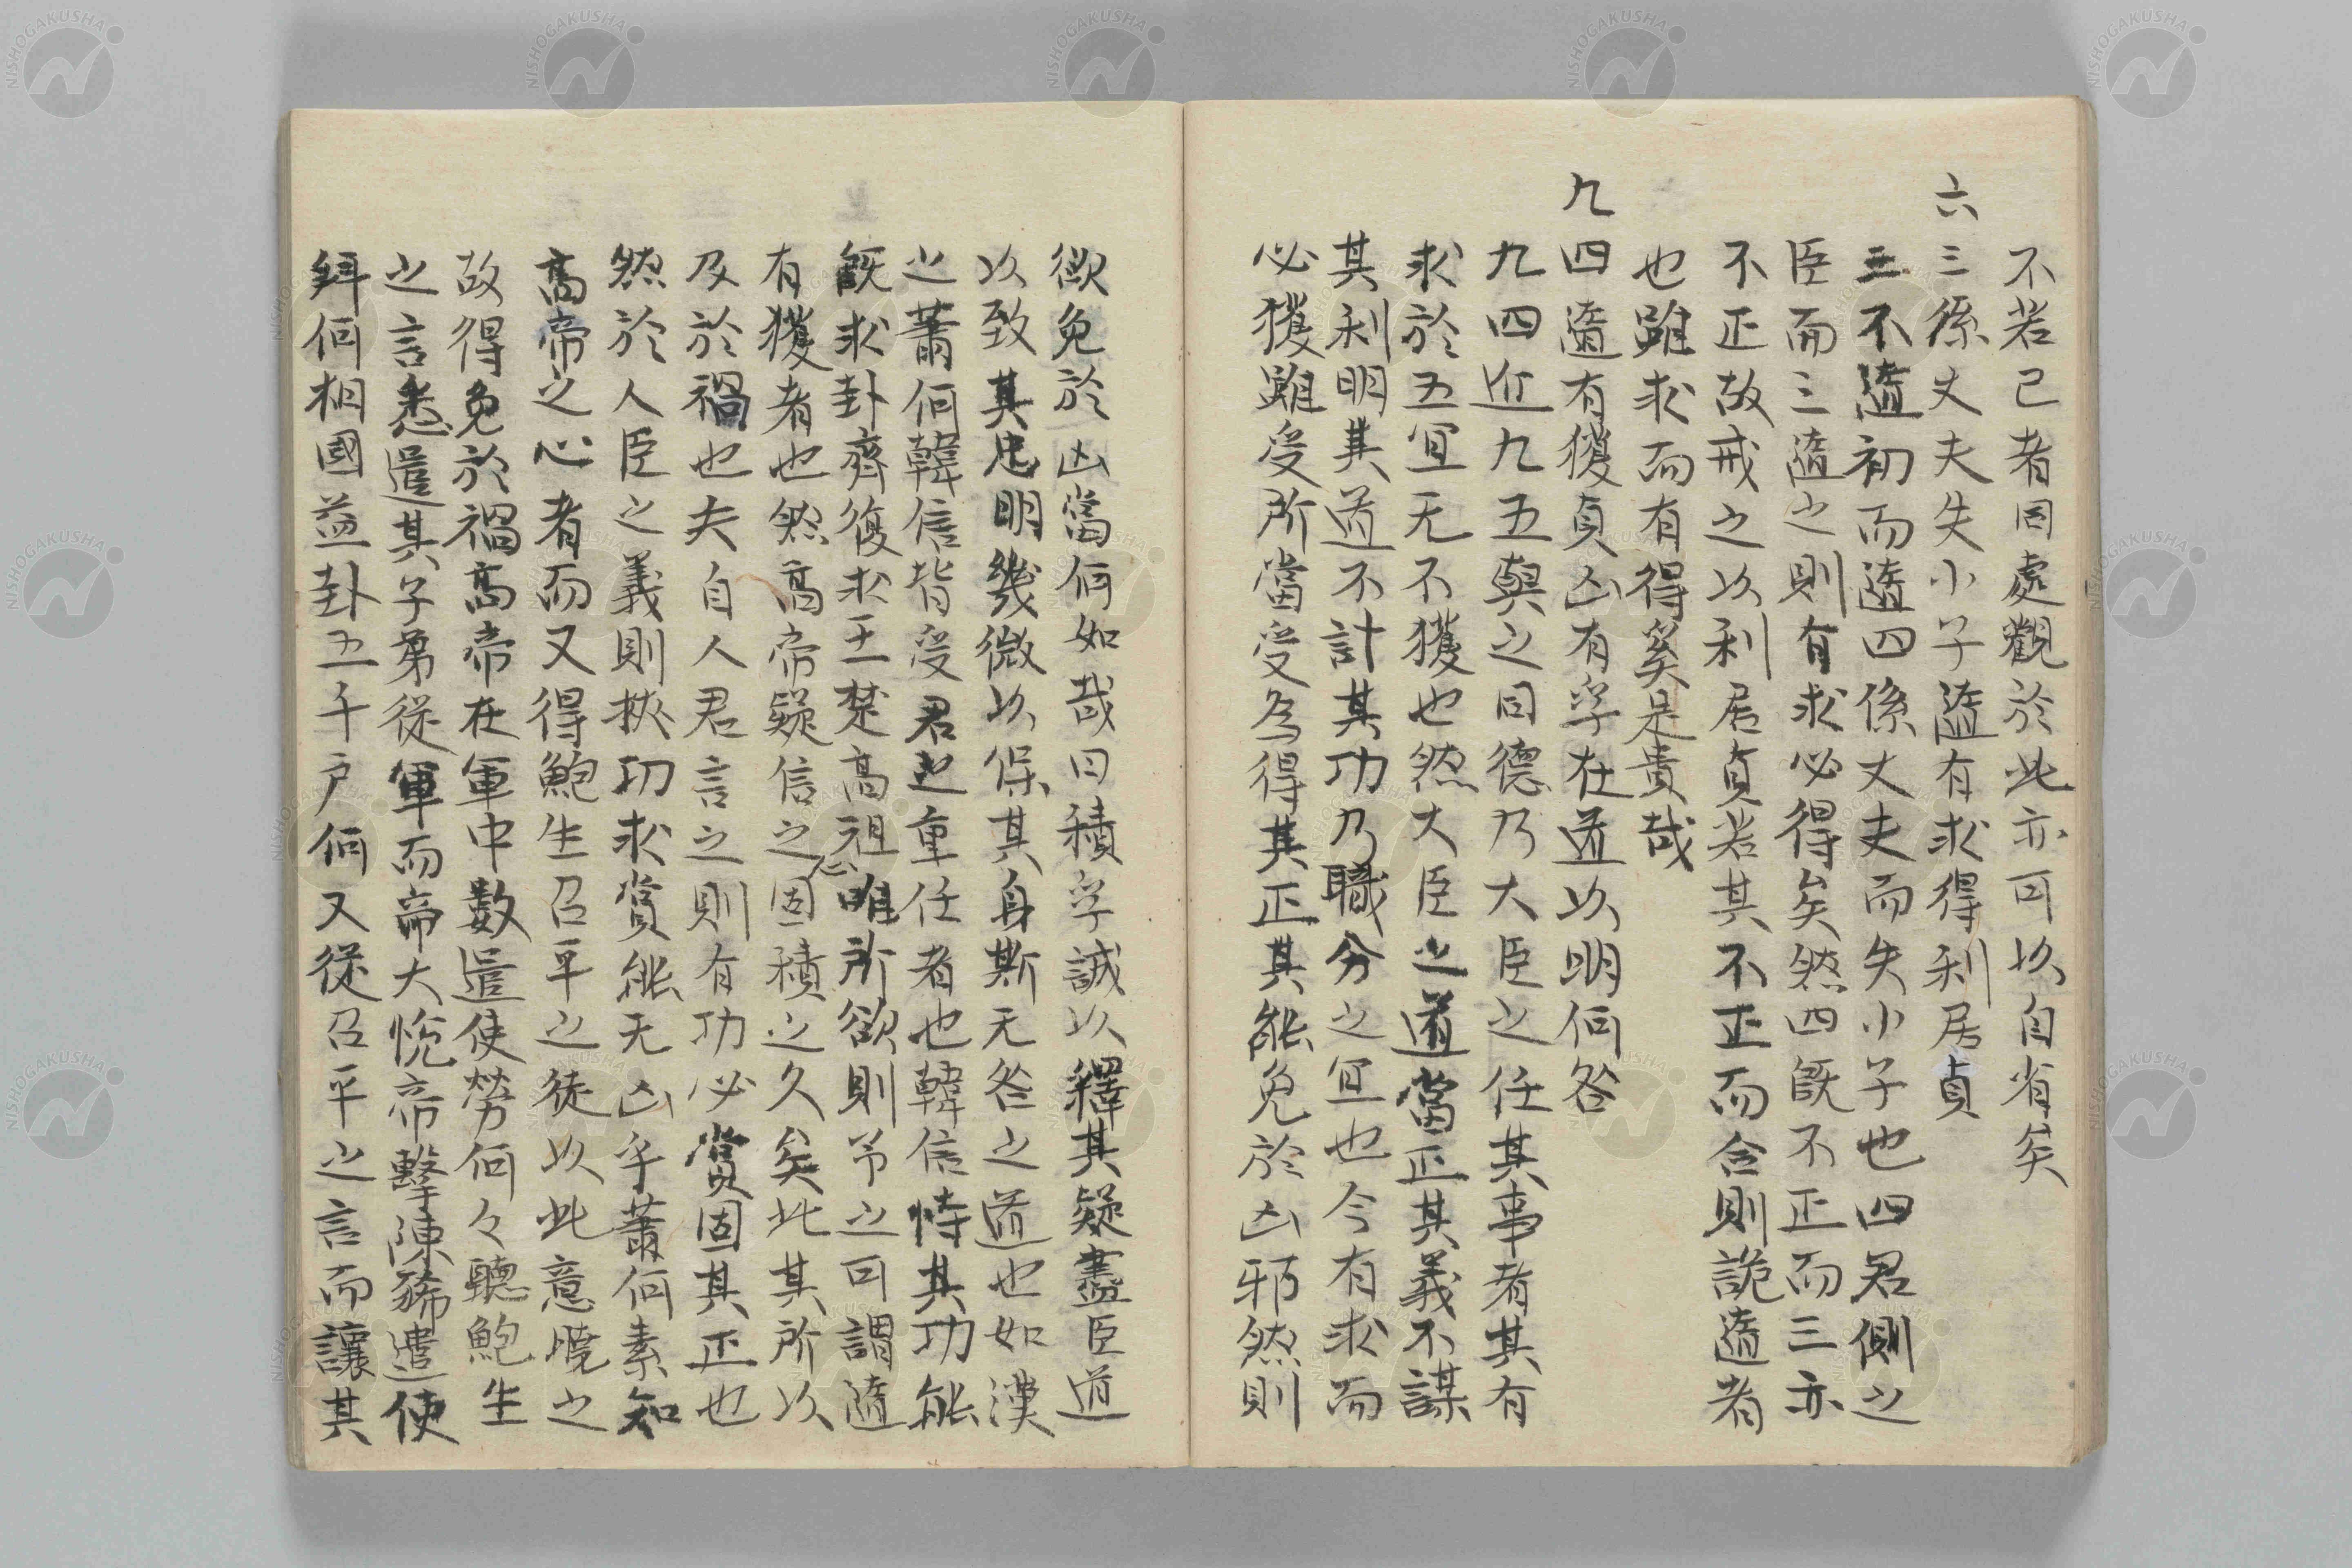 不若己者同處觀於此亦可以自省矣
六三係丈夫失小子隨有求得利居貞
三不隨初而隨四係丈夫而失小子也四君側之
臣而三隨之則有求必得矣然四既不正而三亦
不正故戒之以利居貞若其不正而合則詭隨者
也雖求而有得奚是貴哉
九四隨有獲貞凶有孚在道以明何咎
九四近九五與之同德乃大臣之任其事者其有
求於五宜无不獲也然大臣之道當正其義不謀
其利明其道不計其功乃職分之宜也今有求而
必獲雖受所當受為得其正其能免於凶邪然則
欲免於凶當何如哉曰積孚誠以釋其疑盡臣道
以致其忠明幾微以保其身斯无咎之道也如漢
之蕭何韓信皆受君之重任者也韓信恃其功能
既求卦齊復求王楚高祖唯所欲則予之可謂隨
有獲者也然高帝疑信之心固積之久矣此其所以
及於禍也夫自人君言之則有功必賞固其正也
然於人臣之義則挾功求賞能无凶乎蕭何素知
高帝之心者而又得鮑生召平之徒以此意曉之
故得免於禍高帝在軍中數遣使勞何々聽鮑生
之言悉遣其子弟從軍而帝大悅帝擊陳豨遣使
拜何相國益卦五千戶何又從召平之言而讓其
NISHOGAKUSHA